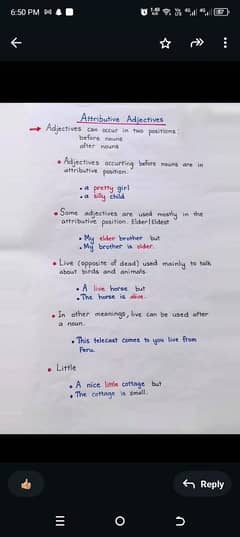 6:50 PM
Attributive Adjectives
→ Adjectives can occur in two positions:
before nouns
after nouns
• Adjectives occurring before nouns are in
attributive position.
• a pretty girl
• a silly child
• Some adjectives are used mostly in the
attributive position. Elder/Eldest
• My elder brother but
• My brother is older.
• Live (opposite of dead) used mainly to talk
about birds and animals.
• A live horse but
• The horse is alive.
• In other meanings, live can be used after
a noun.
• This telecast comes to you live from
Peru.
• Little
• A nice little cottage but
• The cottage is small.
Reply